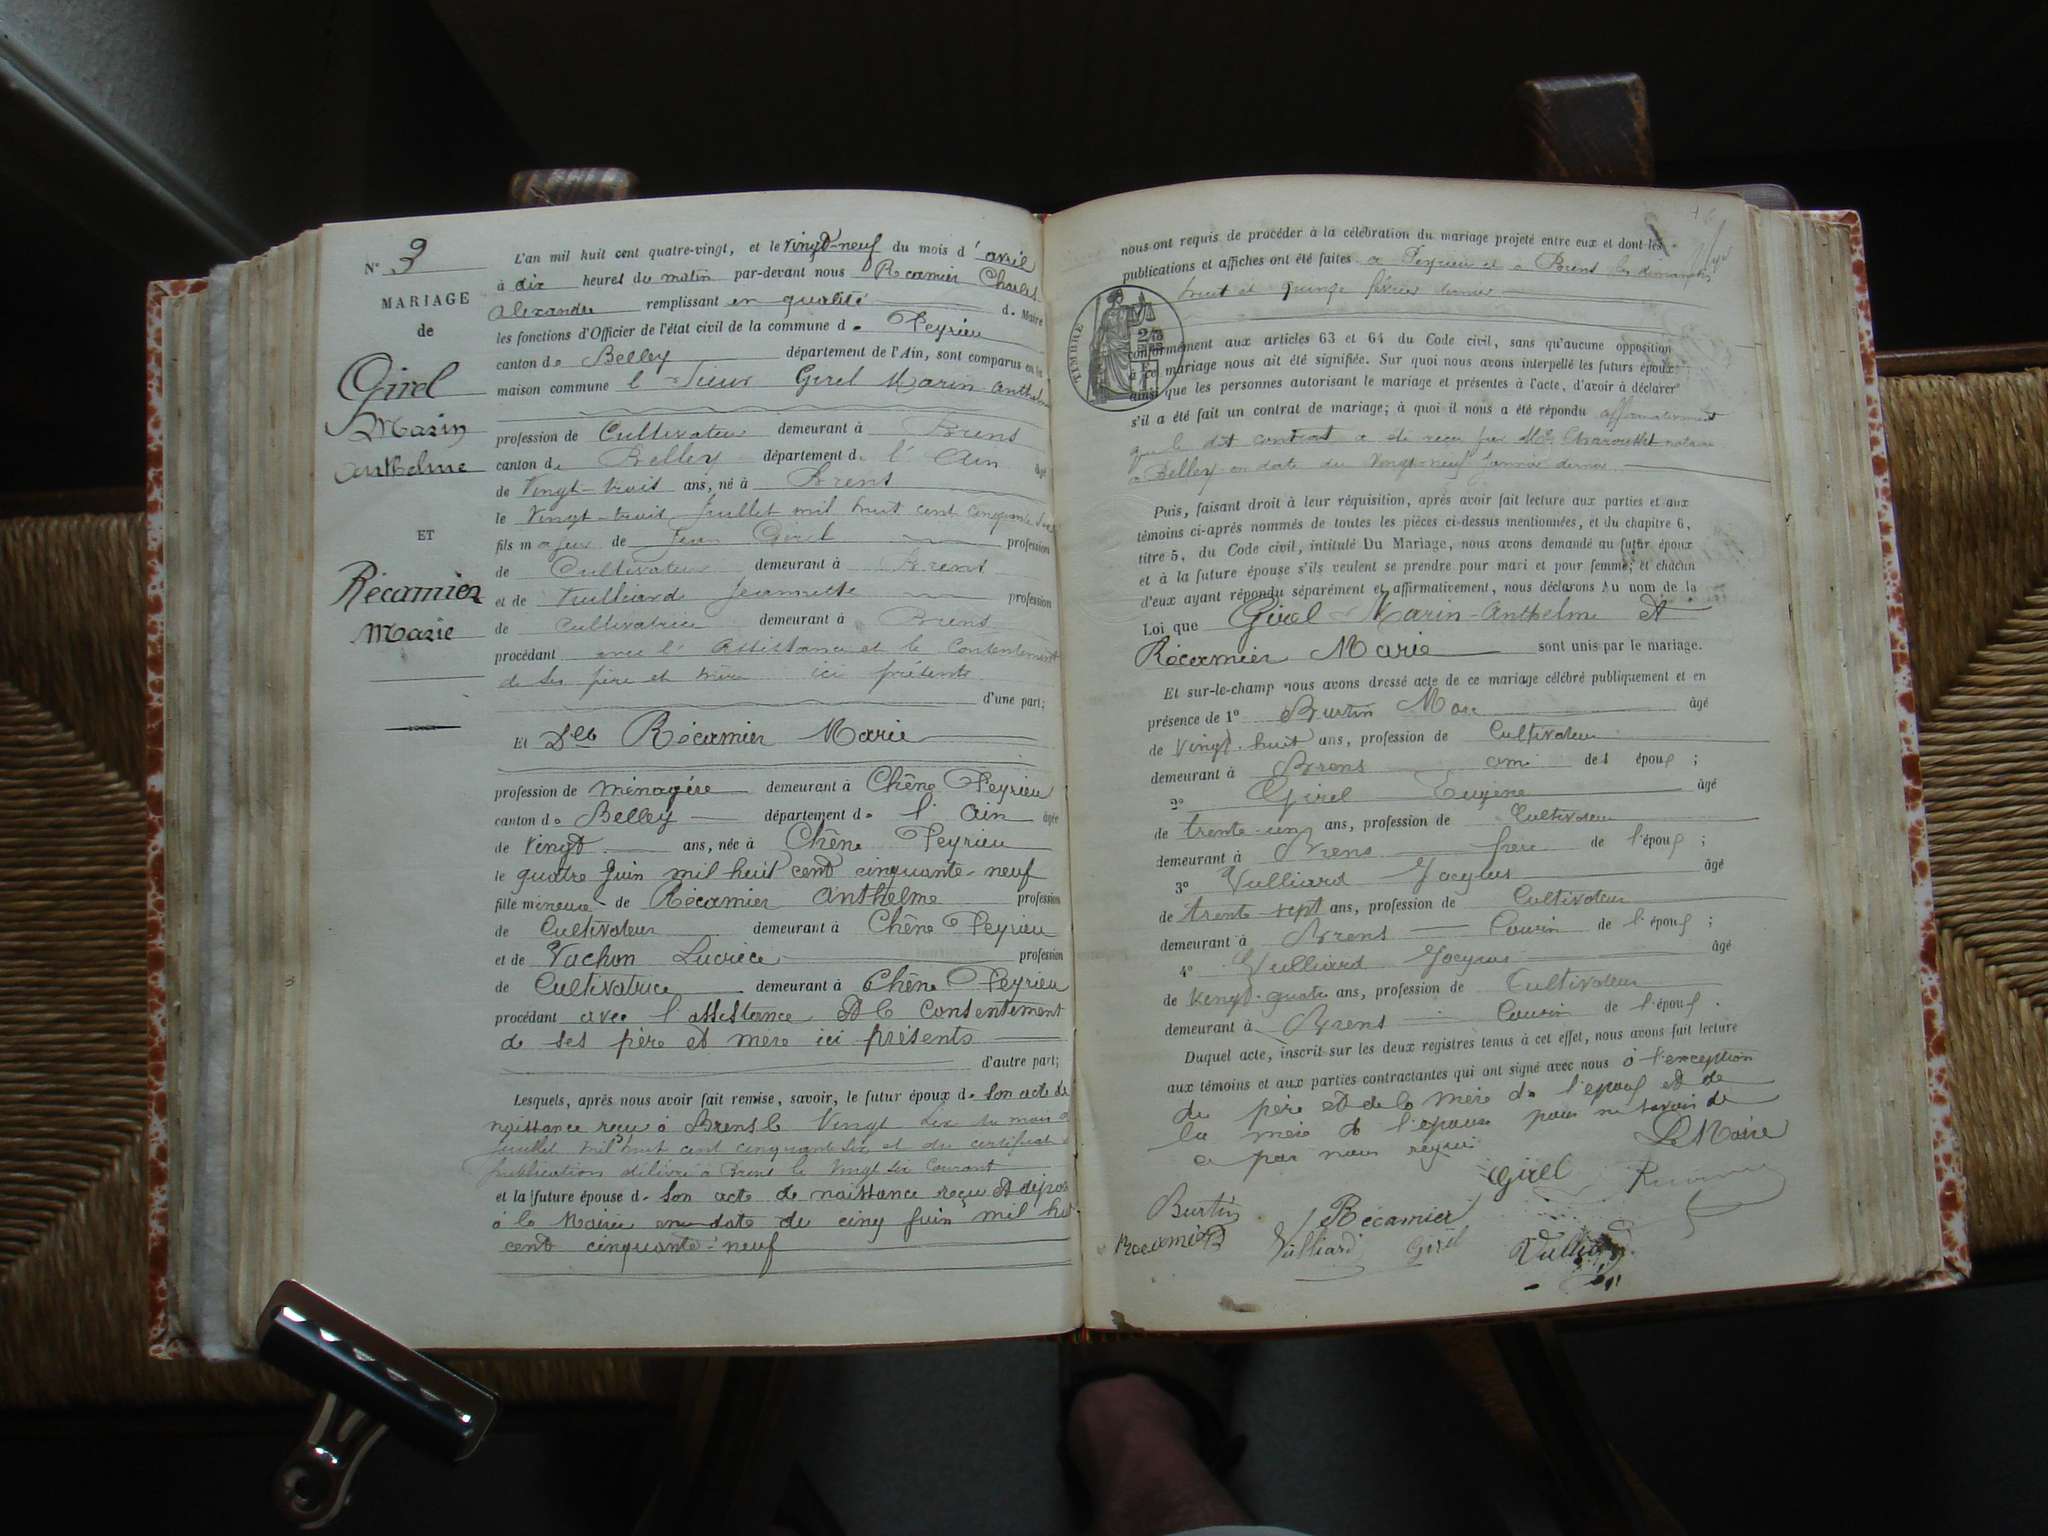 N° 3
MARIAGE
de
Girel
Marin
Anthelme
ET
Récamier
Marie
L'an mil huit cent quatre-vingt, et le vingt-neuf du mois d' avril
à dix heures du matin par-devant nous Récamier Charles
Alexandre remplissant en qualité d. Maire
les fonctions d'Officier de l'état civil de la commune de Peyrieu
canton de Belley département de l'Ain, sont comparus en la
maison commune le sieur Girel Marin Anthelme
profession de Cultivateur demeurant à Brens
canton de Belley département de l'Ain âgé
de Vingt-trois ans, né à Brens
le Vingt- juillet mil huit cent cinquante six
fils majeur de Jean Girel profession
de Cultivateur demeurant à Brens
et de Vulliard Jeannette profession
de Cultivatrice demeurant à Brens
procédant avec l'assistance et le Consentement
de ses père et mère ici présents
d'une part;
Et Dlle Récamier Marie
profession de ménagère demeurant à Chêne Peyrieu
canton de Belley département de l'Ain âgée
de Vingt ans, née à Chêne Peyrieu
le quatre Juin mil huit cent cinquante-neuf
fille mineure de Récamier Anthelme profession
de Cultivateur demeurant à Chêne Peyrieu
et de Vachon Lucrèce profession
de Cultivatrice demeurant à Chêne Peyrieu
procédant avec l'assistance et le Consentement
de ses père et mère ici présents
d'autre part;
Lesquels, après nous avoir fait remise, savoir, le futur époux de son acte de
naissance reçu à Brens le Vingt six du mois de
juillet mil huit cent cinquante six et du certificat de
publication délivré à Brens le vingt six Courant
et la future épouse de son acte de naissance reçu et déposé
à la Mairie en date du cinq juin mil huit
cent cinquante-neuf
nous ont requis de procéder à la célébration du mariage projeté entre eux et dont les
publications et affiches ont été faites à Peyrieu et à Brens les dimanches
huit et quinze février dernier
TIMBRE
conformément aux articles 63 et 64 du Code civil, sans qu'aucune opposition
à ce mariage nous ait été signifiée. Sur quoi nous avons interpellé les futurs époux
ainsi que les personnes autorisant le mariage et présentes à l'acte, d'avoir à déclarer
s'il a été fait un contrat de mariage; à quoi il nous a été répondu affirmativement
que le dit contrat a été reçu par Me notaire
à Belley en date du vingt-neuf janvier dernier
Puis, faisant droit à leur réquisition, après avoir fait lecture aux parties et aux
témoins ci-après nommés de toutes les pièces ci-dessus mentionnées, et du chapitre 6,
titre 5, du Code civil, intitulé Du Mariage, nous avons demandé au futur époux
et à la future épouse s'ils veulent se prendre pour mari et pour femme; et chacun
d'eux ayant répondu séparément et affirmativement, nous déclarons au nom de la
Loi que Girel Marin-Anthelme et
Récamier Marie sont unis par le mariage.
Et sur-le-champ nous avons dressé acte de ce mariage célébré publiquement et en
présence de 1° Burtin âgé
de vingt-huit ans, profession de Cultivateur
demeurant à Brens ami des époux ;
2° Girel Eugène âgé
de trente-un ans, profession de Cultivateur
demeurant à Brens frère de l'époux ;
3° Vulliard âgé
de trente-sept ans, profession de Cultivateur
demeurant à Brens Cousin de l'époux ;
4° Vulliard âgé
de Vingt-quatre ans, profession de Cultivateur
demeurant à Brens Cousin de l'époux .
Duquel acte, inscrit sur les deux registres tenus à cet effet, nous avons fait lecture
aux témoins et aux parties contractantes qui ont signé avec nous à l'exception
du père et de la mère de l'époux et de
la mère de l'épouse pour ne savoir de
ce par nous requis
Le Maire
Girel
Burtin Récamier
Récamier Vulliard Girel Vulliard